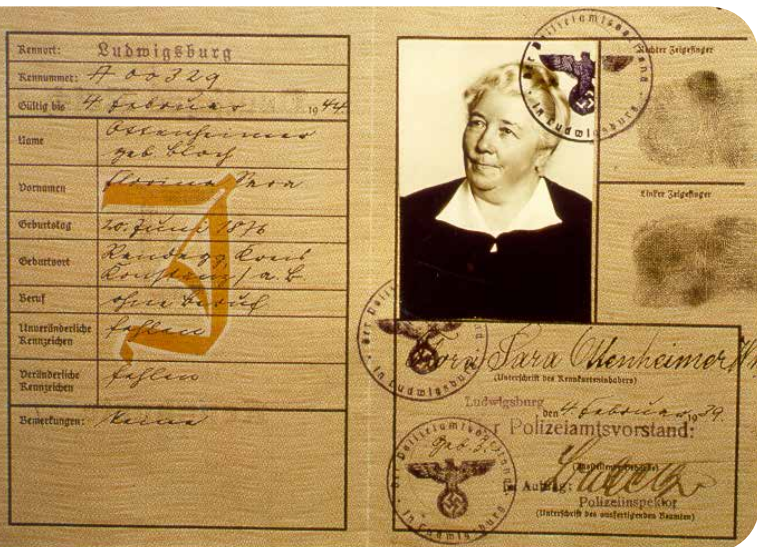 Kennort: Ludwigsburg
Kennummer: A 00329
Gültig bis 4. Februar 1944
Name Ottenheimer
geb. Bloch
Vornamen Sara
Geburtstag 20. Juni 1876
Geburtsort Randegg Kreis
Konstanz a. B.
Beruf ohne Beruf
Unveränderliche
Kennzeichen fehlen
Veränderliche
Kennzeichen fehlen
Bemerkungen: Keine
J
Rechter Zeigefinger
Linker Zeigefinger
Sara Ottenheimer
(Unterschrift des Kennkarteninhabers)
Ludwigsburg, den 4. Februar 1939.
Polizeiamtsvorstand:
Geb. 3.
(Ausstellende Behörde)
Im Auftrag:
Polizeiinspektor
(Unterschrift des ausfertigenden Beamten)